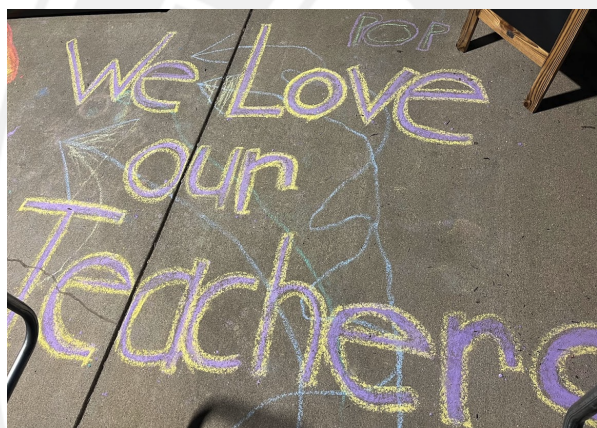 POP
We Love
our
Teachers